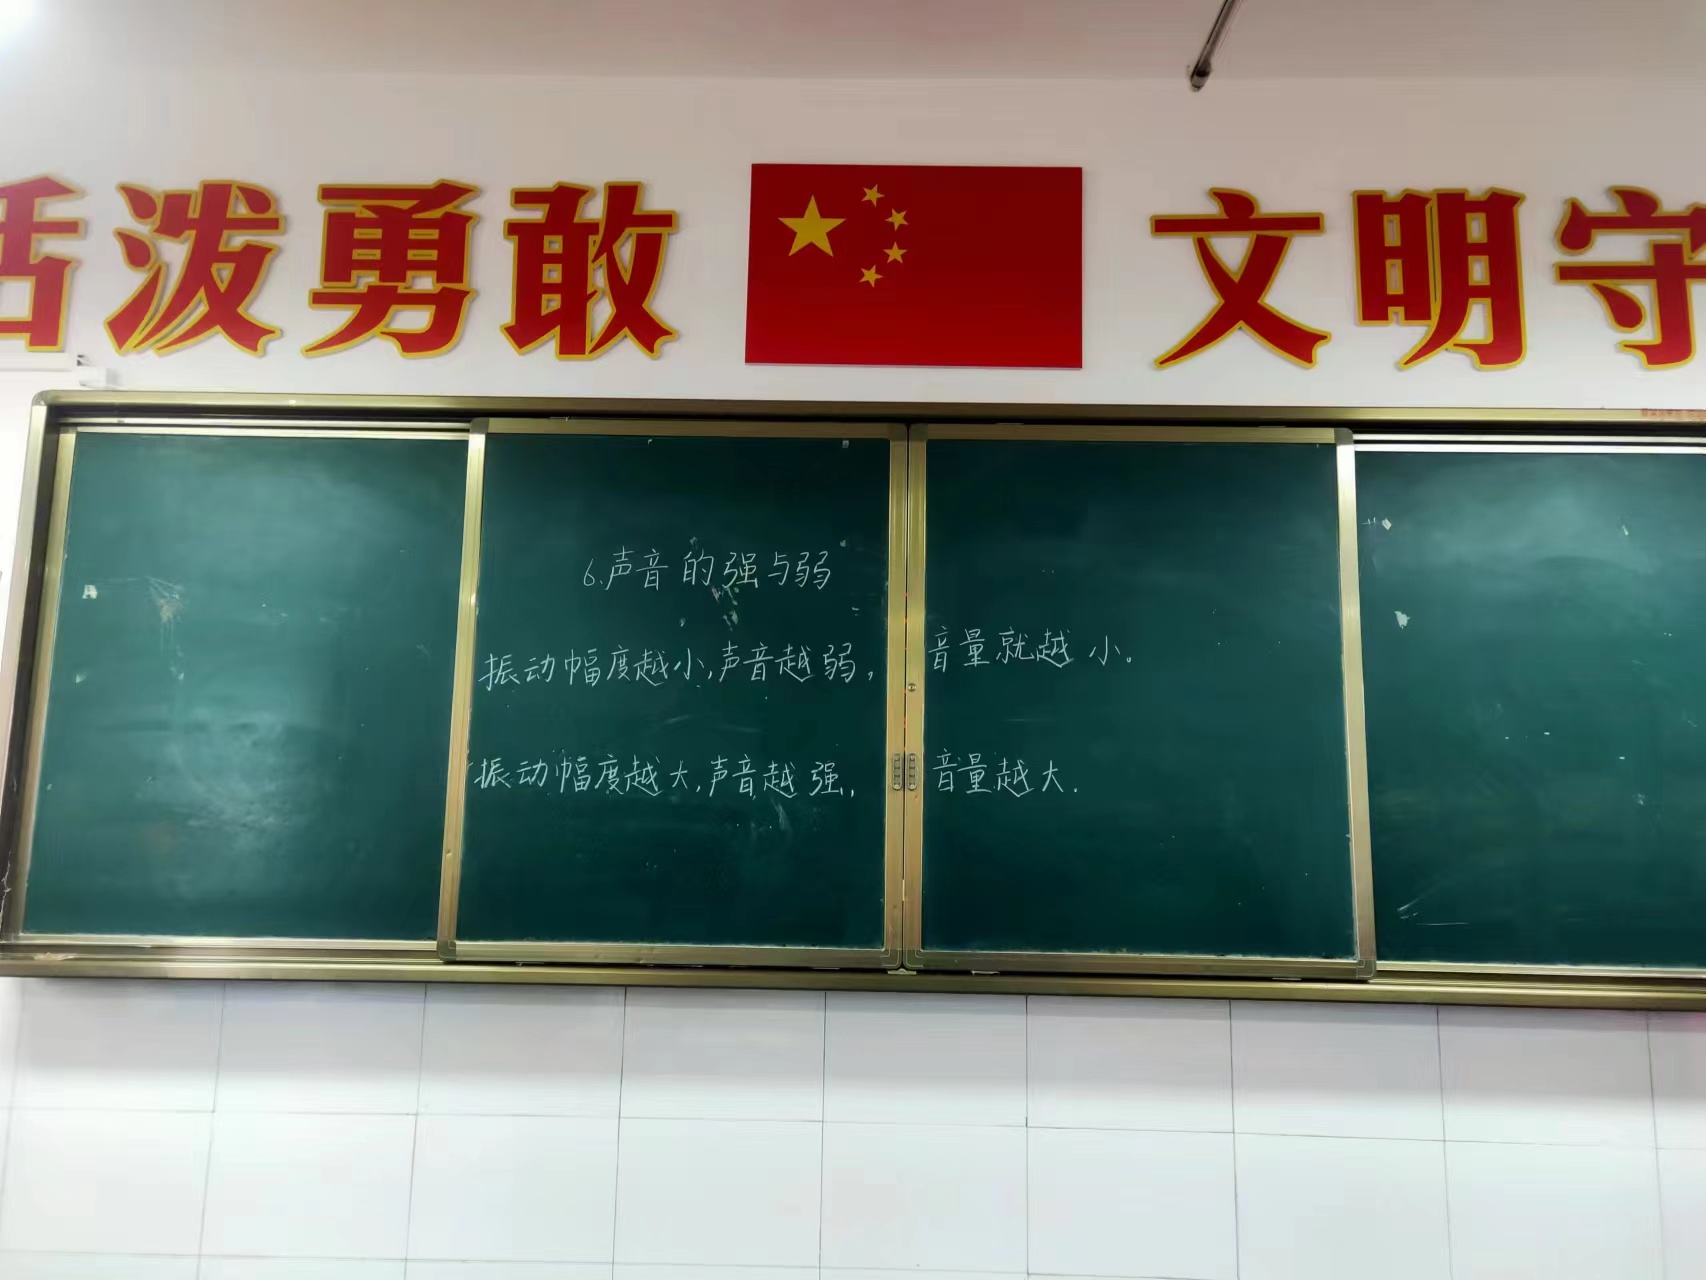 活泼勇敢 文明守
6.声音的强与弱
振动幅度越小,声音越弱, 音量就越小。
振动幅度越大,声音越强, 音量越大.